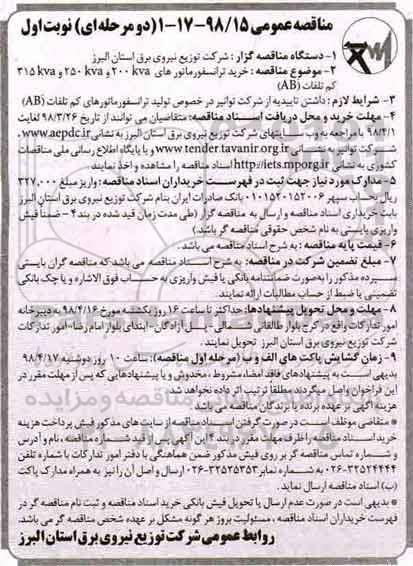 مناقصه عمومی ۹۸/۱۵-۱۷-۱(دو مرحله ای) نوبت اول
۱- دستگاه مناقصه گزار: شرکت توزیع نیروی برق استان البرز
۲- موضوع مناقصه: خرید ترانسفورماتور های ۲۰۰ kva و ۲۵۰ kva و ۳۱۵ kva
کم تلفات (AB)
۳- شرایط لازم: داشتن تاییدیه از شرکت توانیر در خصوص تولید ترانسفورماتورهای کم تلفات (AB)
۴- مهلت خرید و محل دریافت اسناد مناقصه: متقاضیان می توانند از تاریخ ۹۸/۳/۲۶ لغایت
۹۸/۴/۱ با مراجعه به وب سایتهای شرکت توزیع نیروی برق استان البرز به نشانی www.aepdc.ir،
شرکت توانیر به نشانی www.tender.tavanir.org.ir و یا پایگاه اطلاع رسانی ملی مناقصات
کشوری به نشانی http://iets.mporg.ir اسناد مناقصه را مشاهده و اخذ نمایند
۵- مدارک مورد نیاز جهت ثبت در فهرست خریداران اسناد مناقصه: واریز مبلغ ۳۲۷،۰۰۰
ریال بحساب سپهر ۰۱۰۱۵۲۰۱۵۲۰۰۶ بانک صادرات ایران بنام شرکت توزیع نیروی برق استان البرز
بابت خریداری اسناد مناقصه و ارسال به مناقصه گزار (طی مدت زمان قید شده در بند ۴- ضمنا فیش
واریزی بایستی به نام شخص حقوقی مناقصه گر باشد.)
۶- قیمت پایه مناقصه: به شرح اسناد مناقصه می باشد.
۷- مبلغ تضمین شرکت در مناقصه: به شرح اسناد مناقصه می باشد که مناقصه گران بایستی
سپرده مذکور را بصورت ضمانتنامه بانکی یا فیش واریزی به حساب فوق الاشاره و یا چک بانکی
تضمینی یا ضبط از حساب مطالبات ارائه نمایند.
۸- مهلت و محل تحویل پیشنهادها: حداکثر تا ساعت ۱۶ روز یکشنبه مورخ ۹۸/۴/۱۶ به دبیرخانه
امور تدارکات واقع در کرج بلوار طالقانی شمالی - پل آزادگان - ابتدای بلوار امام رضا - امور تدارکات
شرکت توزیع نیروی برق استان البرز تحویل نمایند.
۹- زمان گشایش پاکت های الف و ب (مرحله اول مناقصه): ساعت ۱۰ روز دوشنبه ۹۸/۴/۱۷
بدیهی است به پیشنهادهای فاقد امضاء، مشروط، مخدوش و یا پیشنهادهایی که پس از مهلت مقرر در
این فراخوان واصل میگردند مطلقا ترتیب اثر داده نخواهد شد.
هزینه آگهی بر عهده برنده یا برندگان مناقصه می باشد
* متقاضی موظف است در صورت گرفتن اسناد مناقصه از سایت های مذکور فیش پرداخت هزینه
خرید اسناد مناقصه را ظرف مهلت مقرر در بند ۴ این آگهی پس از قید شماره مناقصه، نام و آدرس
و شماره تماس مناقصه گر بر روی فیش مذکور ضمن هماهنگی با دفتر امور تدارکات با شماره تلفن
۰۲۶-۳۲۵۲۴۴۴۴ به شماره نمابر ۰۲۶-۳۲۵۲۵۳۵۳ ارسال و اصل آن را نیز به همراه مدارک پاکت
(ب) اسناد مناقصه ارسال نمایند.
* بدیهی است در صورت عدم ارسال یا تحویل فیش بانکی خرید اسناد مناقصه و ثبت نام مناقصه گر در
فهرست خریداران اسناد مناقصه، مسئولیت بروز هر گونه مشکل بر عهده شخص مناقصه گر می باشد.
روابط عمومی شرکت توزیع نیروی برق استان البرز